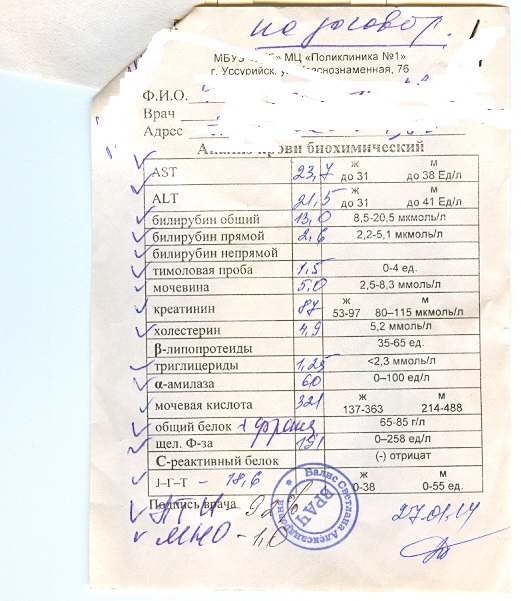 на договор.
МЦ «Поликлиника №1»
г. Уссурийск, Краснознаменная, 76
Ф.И.О.
Врач
Адрес
Анализ крови биохимический
AST 23,7 ж до 31 м до 38 Ед/л
ALT 21,5 ж до 31 м до 41 Ед/л
билирубин общий 13,0 8,5-20,5 мкмоль/л
билирубин прямой 2,6 2,2-5,1 мкмоль/л
билирубин непрямой
тимоловая проба 1,5 0-4 ед.
мочевина 5,0 2,5-8,3 ммоль/л
креатинин 87 ж 53-97 м 80–115 мкмоль/л
холестерин 4,9 5,2 ммоль/л
β-липопротеиды 35-65 ед.
триглицериды 1,25 <2,3 ммоль/л
α-амилаза 60 0–100 ед/л
мочевая кислота 321 ж 137-363 м 214-488
общий белок + 65-85 г/л
щел. Ф-за 151 0–258 ед/л
С-реактивный белок (-) отрицат
J–Г–Т - 18,6 ж 0-38 м 0-55 ед.
Подпись врача
ПТИ 92%
МНО - 1,0
27.01.14
Валис Светлана Александровна
ВРАЧ